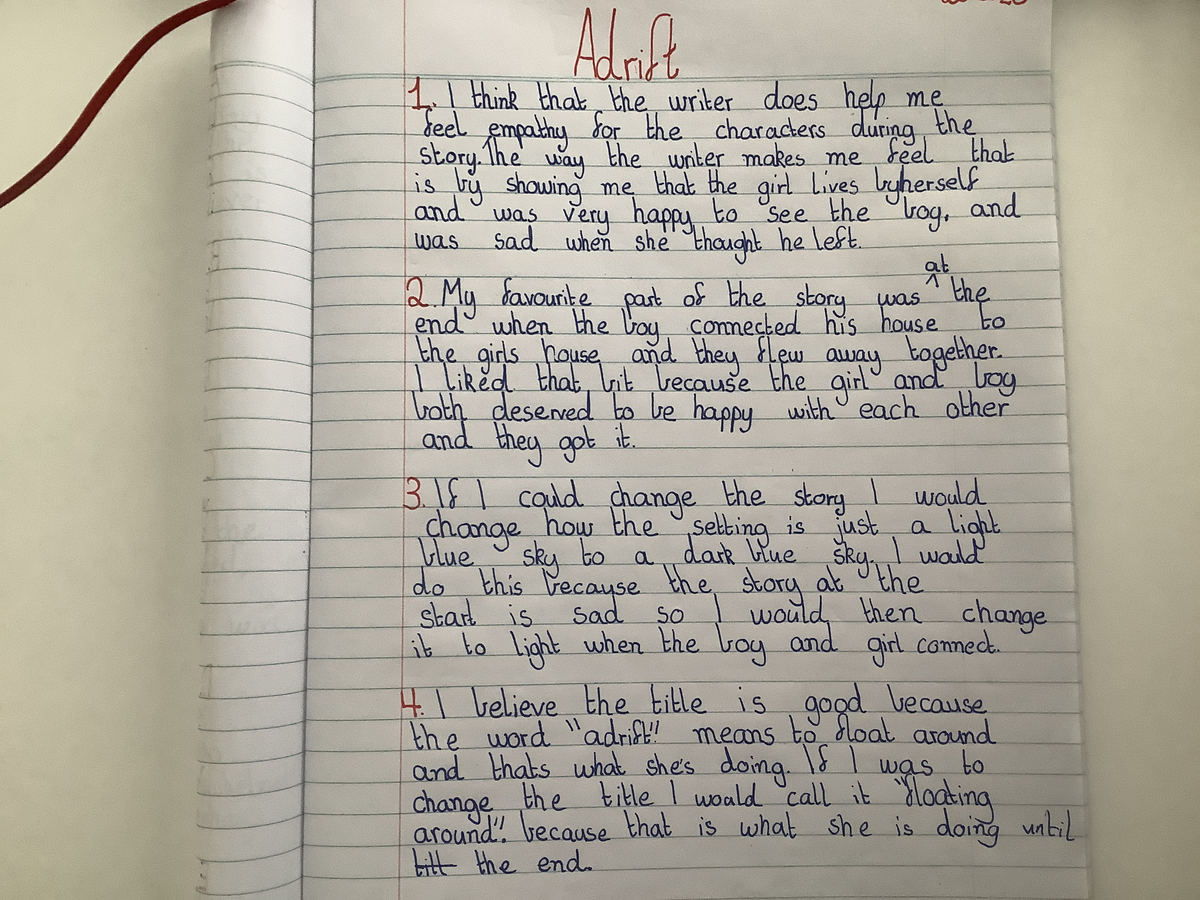 Adrift
1. I think that the writer does help me
feel empathy for the characters during the
story. The way the writer makes me feel that
is by showing me that the girl lives byherself
and was very happy to see the boy, and
was sad when she thought he left.
at
2. My favourite part of the story was ^ the
end when the boy connected his house to
the girls house and they flew away together.
I liked that bit because the girl and boy
both deserved to be happy with each other
and they got it.
3. If I could change the story I would
change how the setting is just a light
blue sky to a dark blue sky. I would
do this because the story at the
start is sad so I would then change
it to light when the boy and girl connect.
4. I believe the title is good because
the word "adrift" means to float around
and thats what she's doing. If I was to
change the title I would call it "floating
around". because that is what she is doing until
till the end.